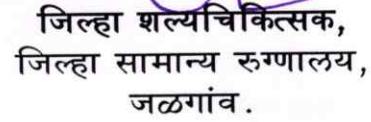 जिल्हा शल्यचिकित्सक,
जिल्हा सामान्य रुग्णालय,
जळगांव.